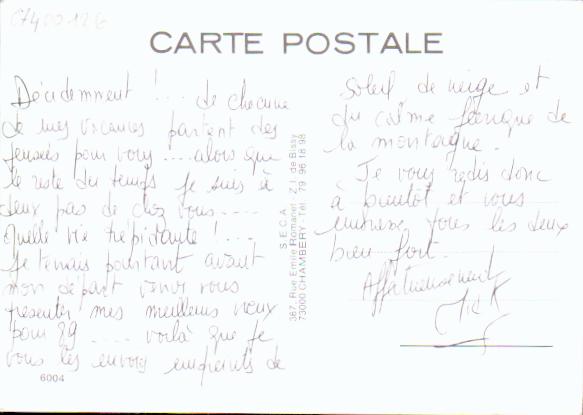 C7400126
CARTE POSTALE
Décidemment !... de chacune
de mes vacances partent des
pensées pour vous .... alors que
le reste du temps je suis à
deux pas de chez vous ....
Quelle vie trépidante ! ...
Je tenais pourtant avant
mon départ venir vous
présenter mes meilleurs vœux
pour 89 .... voilà que je
vous les envois empreints de
6004
S.E.C.A.
367, Rue Emile Romanet - Z.I. de Bissy
73000 CHAMBERY - Tél. 79 96 18 98
soleil de neige et
du calme féerique de
la montagne.
Je vous redis donc
à bientôt et vous
embrasse tous les deux
bien fort.
Affectueusement